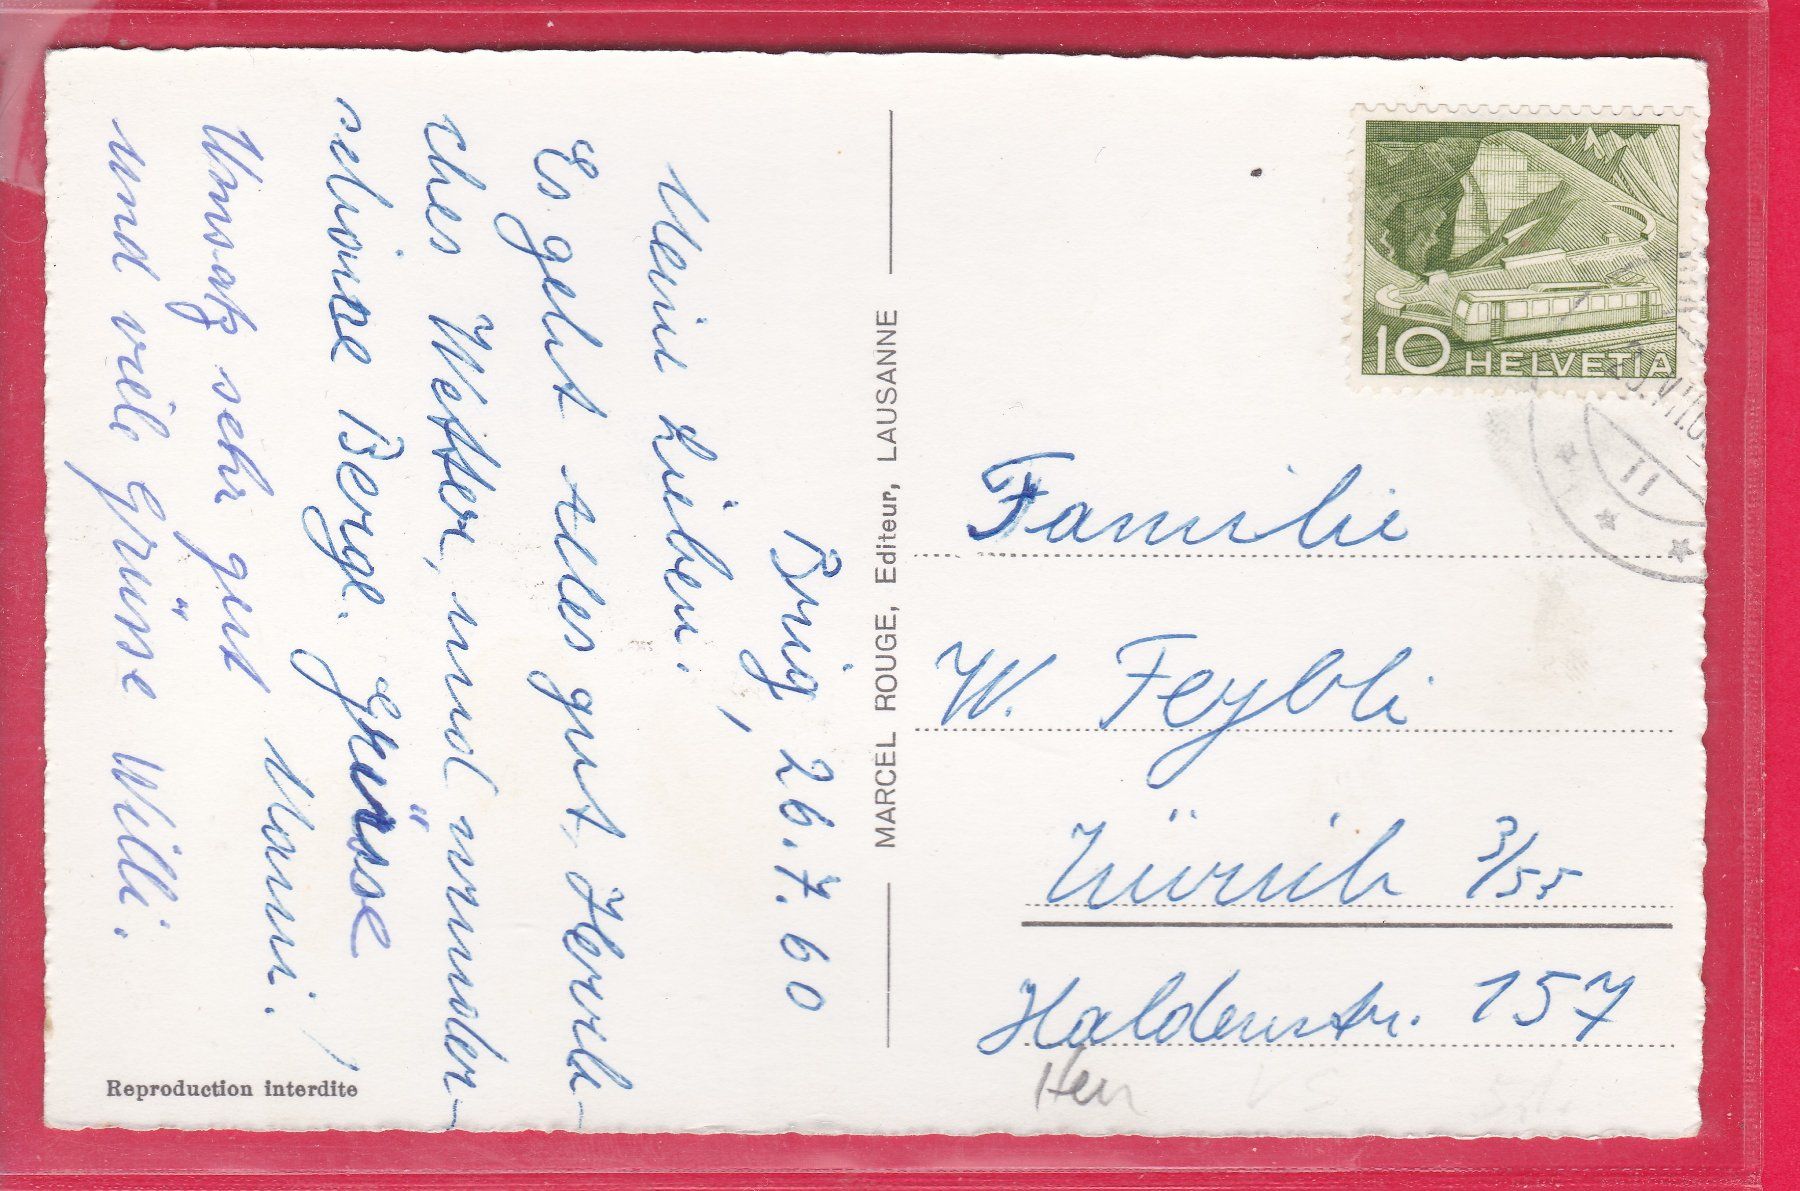 Brig, 26.7.60
Meine Lieben!
Es geht alles gut, Herrli-
ches Wetter, und wunder-
schöne Berge. Grüsse
Mami!
Umsatz sehr gut
und viele Grüsse Willi.
Reproduction interdite
MARCEL ROUGE, Editeur, LAUSANNE
10 HELVETIA
11
Familie
W. Feybli
Zürich 3/55
Haldenstr. 157